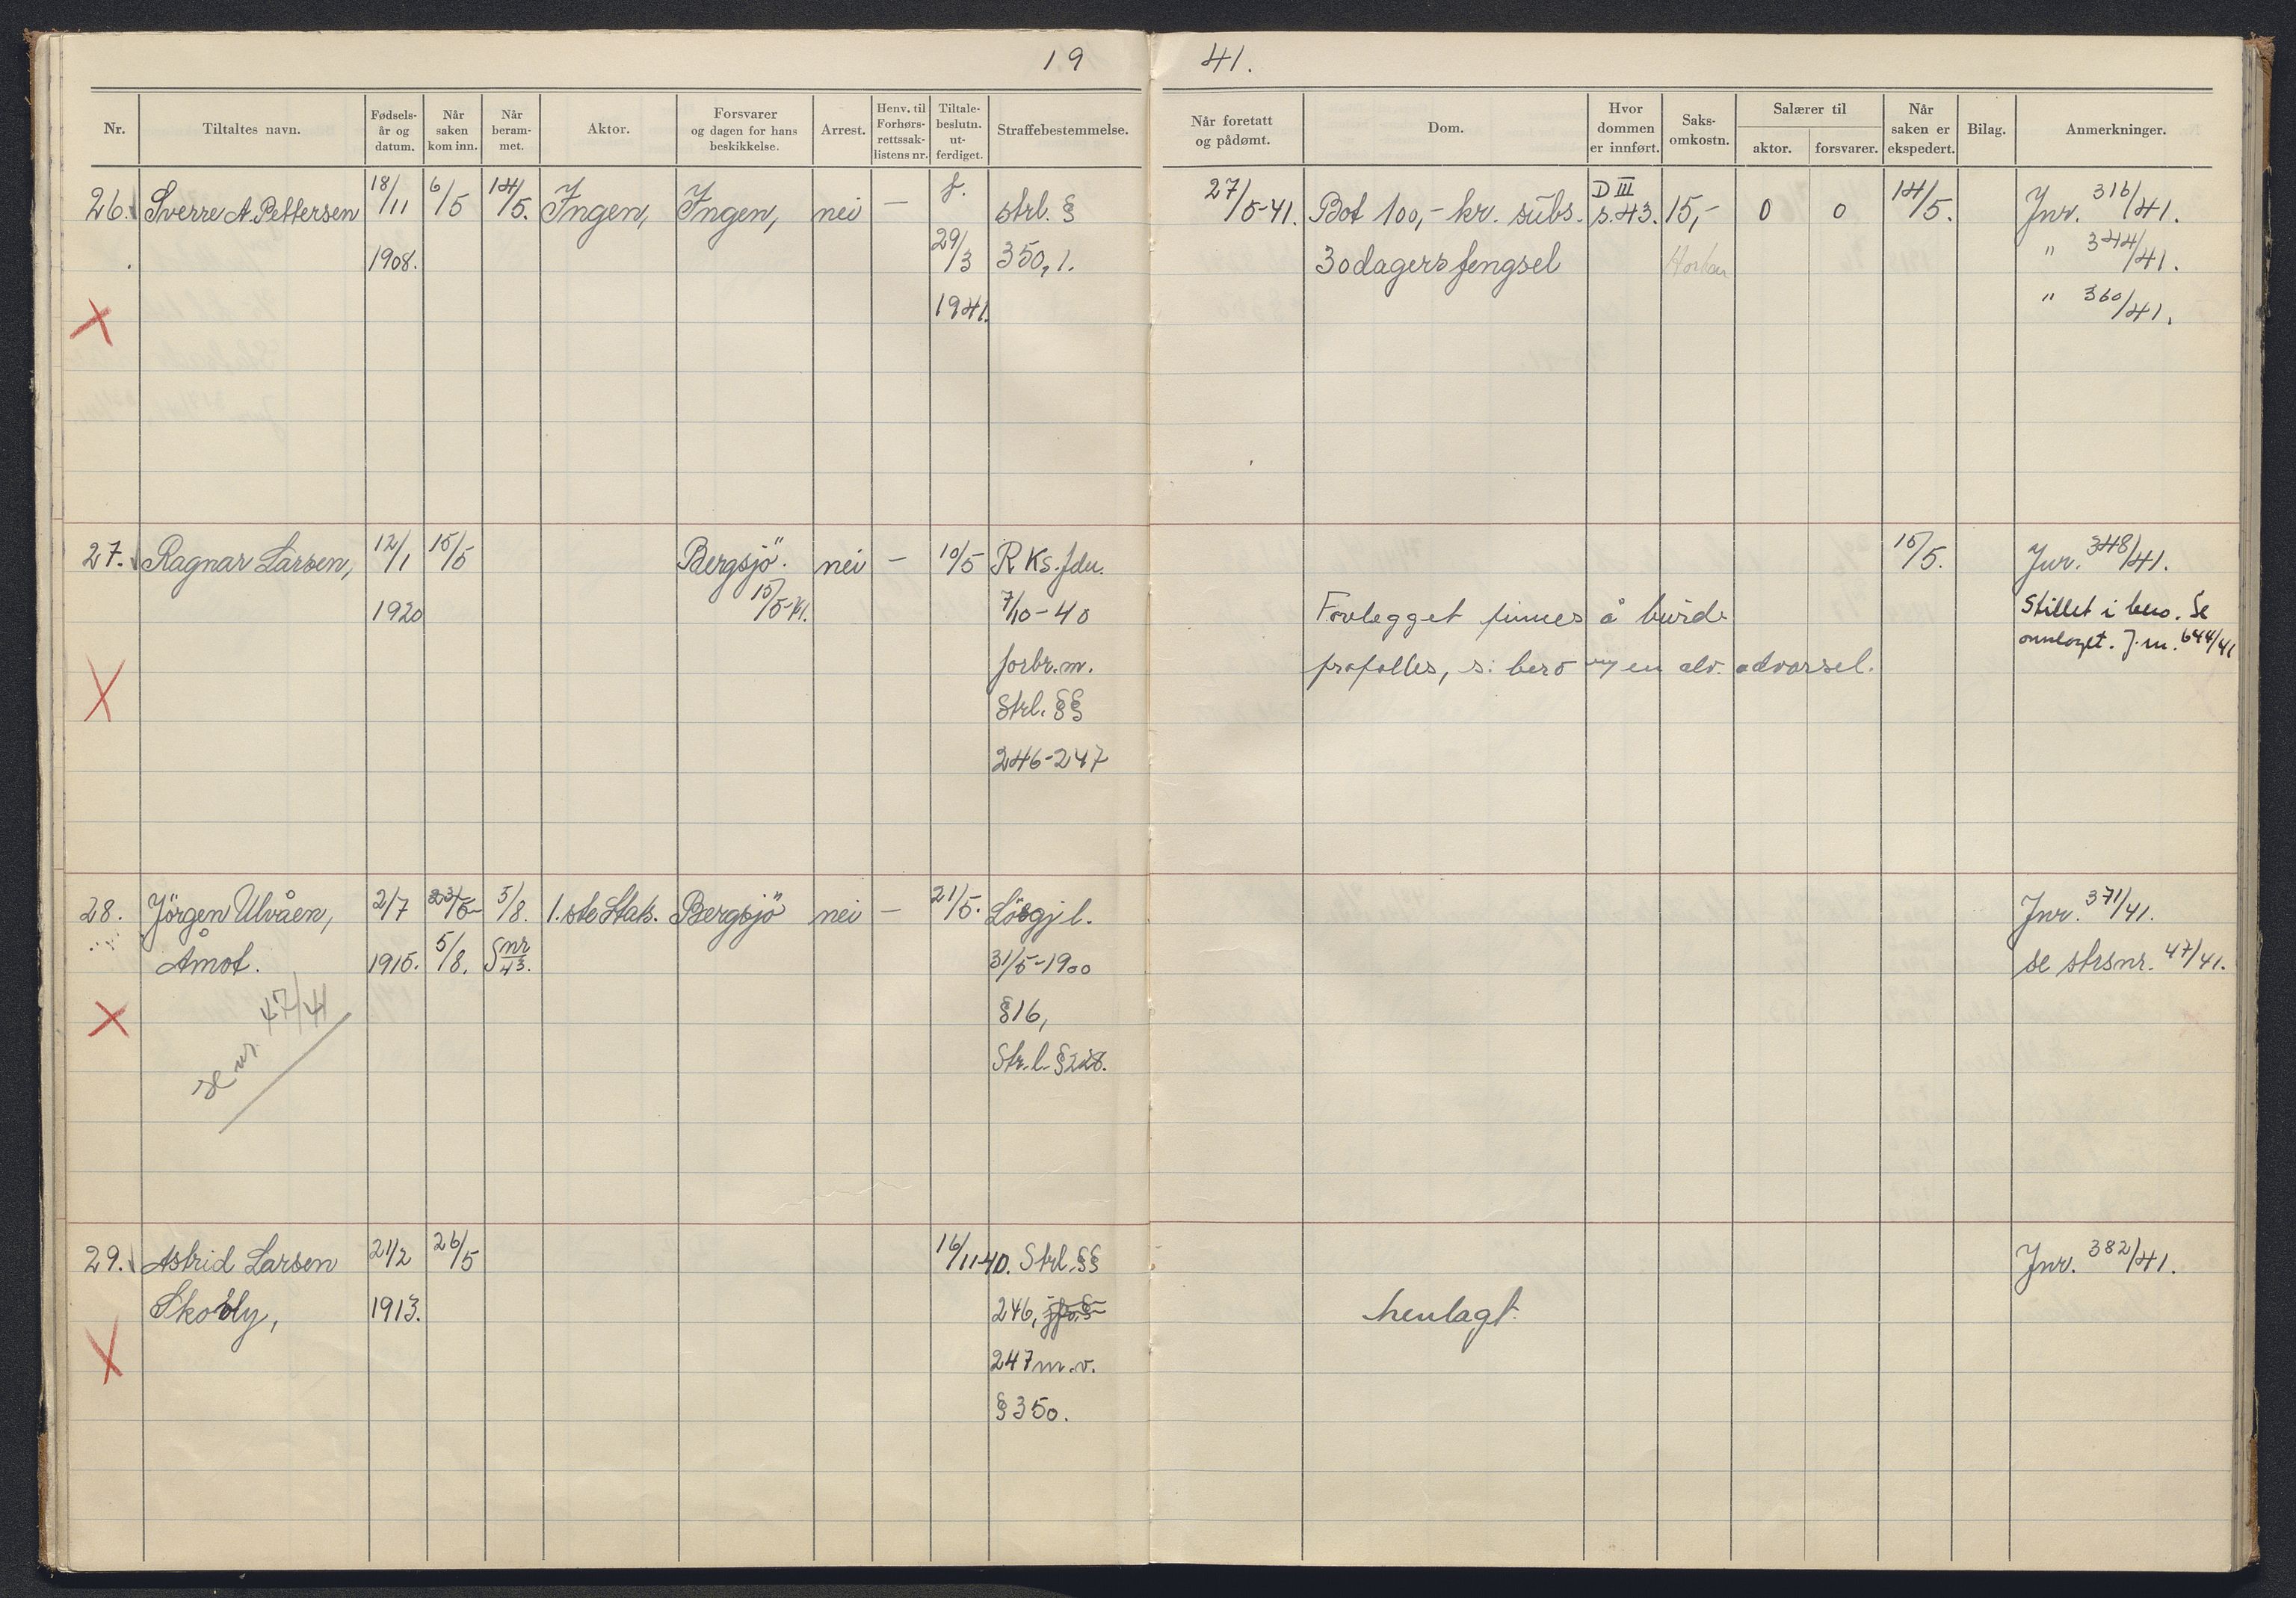 19 41.
Nr. Tiltaltes navn. Fødsels-år og datum. Når saken kom inn. Når beram-met. Aktor. Forsvarer og dagen for hans beskikkelse. Arrest. Henv. til Forhørs-rettssak-listens nr. Tiltale-beslutn. ut-ferdiget. Straffebestemmelse. Når foretatt og pådømt. Dom. Hvor dommen er innført. Saks-omkostn. Salærer til aktor. forsvarer. Når saken er ekspedert. Bilag. Anmerkninger.
26. Sverre A. Pettersen 18/11 6/5 14/5. Ingen, Ingen, nei — f. strl. § 27/5-41. Bot 100,- kr. subs. D III s. 43. 15,- 0 0 14/5. Jnr. 316/41.
1908. 29/3 350, 1. 30 dagers fengsel " 344/41.
1941. " 360/41.
27. Ragnar Larsen, 12/1 15/5 Bergsjö. nei — 10/5 R Ks. fdn. 15/5. Jnr. 348/41.
1920 15/5-41. 7/10-40 Forlegget finnes å burde Stillet i bero. Se
omslaget. J.nr. 644/41
forbr. m. frafalles, en alv. advarsel.
Strl. §§
246-247
28. Jörgen Ulvåen, 2/7 23/5 5/8. 1.ste Stats. Bergsjö nei — 21/5. Lösgj l. Jnr. 371/41.
Åmot. 1915. 5/8. S nr 43. 31/5-1900 se strsnr. 47/41.
se nr. 47/41 §16,
Str.l. §228.
29. Astrid Larsen 21/2 26/5 16/11-40. Strl. §§ Jnr. 382/41.
Skobly, 1913. 246, jfr. § henlagt.
247 m.v.
§ 350.